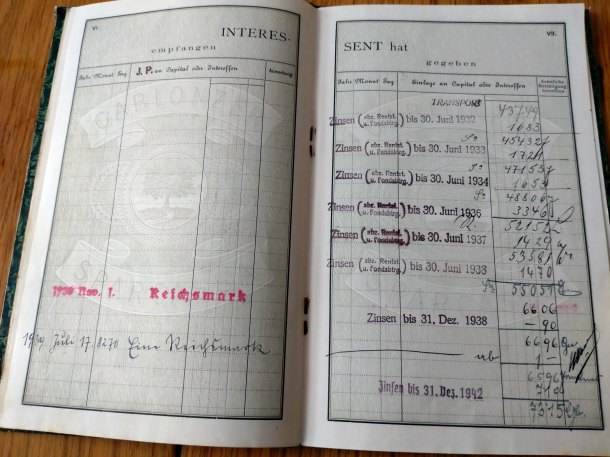 VI.
INTERES-
empfangen
Jahr Monat Tag
J. P. an Capital oder Interessen
Anmerkung
GABLONZ
1938 Nov. 1. Reichsmark
1939 Juli 17. 8270 Eine Reichsmark
VII.
SENT hat
gegeben
Jahr Monat Tag
Einlage an Capital oder Interessen
TRANSPORT
Zinsen (abz. Rentst. u. Fondsbtrg.) bis 30. Juni 1932
1683
Zinsen (abz. Rentst. u. Fondsbtrg.) bis 30. Juni 1933
Zinsen (abz. Rentst. u. Fondsbtrg.) bis 30. Juni 1934
Zinsen (abz. Rentst. u. Fondsbtrg.) bis 30. Juni 1936
Zinsen (abz. Rentst. u. Fondsbtrg.) bis 30. Juni 1937
Zinsen (abz. Rentst. u. Fondsbtrg.) bis 30. Juni 1938
1470
55051
6606
Zinsen bis 31. Dez. 1938
- 90
6696
ab 1 -
Zinsen bis 31. Dez. 1942
7315